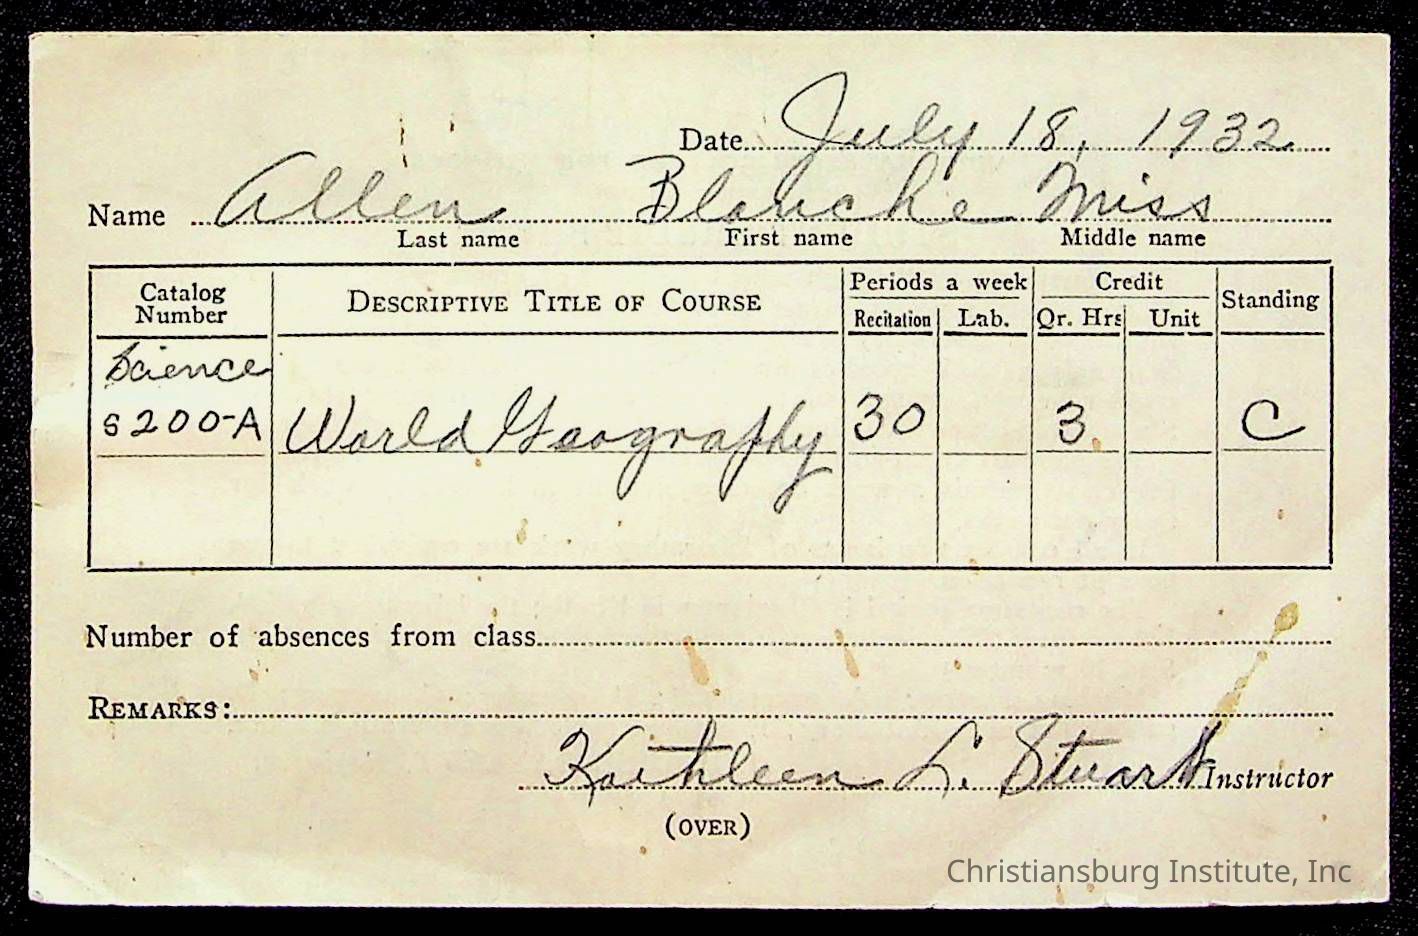 Date July 18, 1932
Name Allen Blanche Miss
Last name First name Middle name
Catalog Number DESCRIPTIVE TITLE OF COURSE Periods a week Credit Standing
Recitation Lab. Qr. Hrs Unit
Science
S200-A World Geography 30 3 C
Number of absences from class
REMARKS:
Kathleen L. Stuart Instructor
(OVER)
Christiansburg Institute, Inc